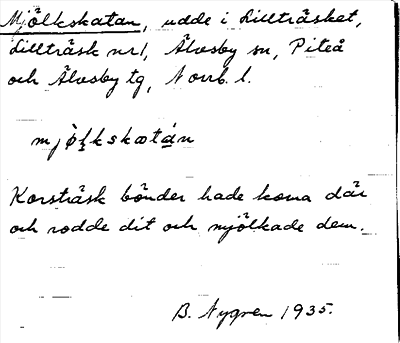 Mjölkskatan, udde i Lillträsket,
Lillträsk nr 1, Älvsby sn, Piteå
och Älvsby tg, Norrb. l.
mjö̀ļkskætá̠n
Korsträsk bönder hade korna där
och rodde dit och mjölkade dem.
B. Nygren 1935.